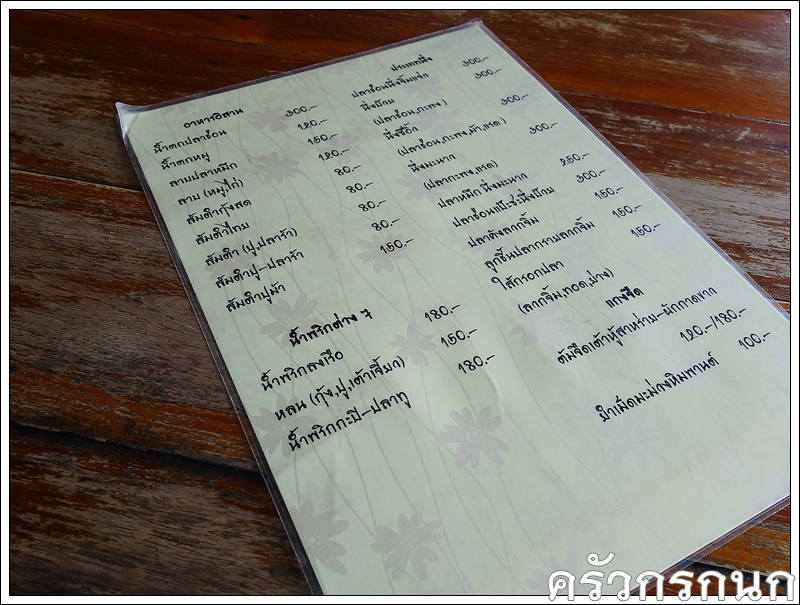 อาหารอิสาน
น้ำตกปลาช่อน 300.-
น้ำตกหมู 120.-
ลาบปลาหมึก 150.-
ลาบ (หมู,ไก่) 120.-
ส้มตำกุ้งสด 80.-
ส้มตำไทย 80.-
ส้มตำ (ปู,ปลาร้า) 80.-
ส้มตำปู-ปลาร้า 80.-
ส้มตำปูม้า 150.-
น้ำพริกต่าง ๆ
น้ำพริกลงเรือ 180.-
หลน (กุ้ง,ปู,เต้าเจี้ยว) 150.-
น้ำพริกกะปิ-ปลาทู 180.-
ประเภทนึ่ง
ปลาช่อนนึ่งจิ้มแจ่ว 300.-
นึ่งบ๊วย 300.-
(ปลาช่อน,กะพง)
นึ่งซีอิ๊ว 300.-
(ปลาช่อน,กะพง,เก๋า,แรด)
นึ่งมะนาว 300.-
(ปลากะพง,แรด)
ปลาหมึก นึ่งมะนาว 250.-
ปลาช่อนแป๊ะซะนึ่งบ๊วย 300.-
ปลาคังลวกจิ้ม 150.-
ลูกชิ้นปลากรายลวกจิ้ม 150.-
ไส้กรอกปลา
(ลวกจิ้ม,ทอด,ย่าง)
แกงจืด
ต้มจืดเต้าหู้สาหร่าย-ผักกาดขาว
120.-/180.-
ยำเม็ดมะม่วงหิมพานต์ 100.-
ครัวกรกนก